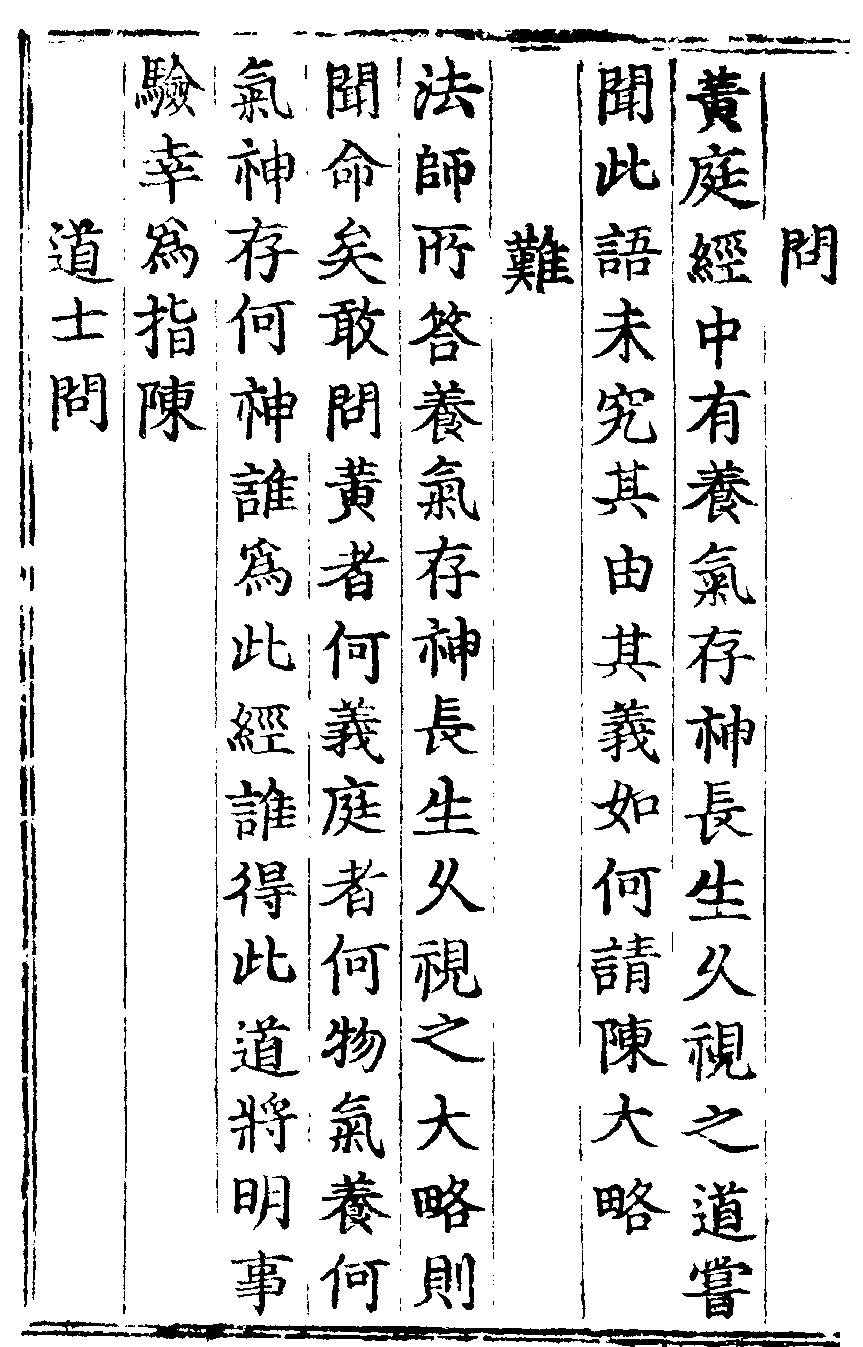 問
黄庭經中有養氣存神長生久視之道嘗
聞此語未究其由其義如何請陳大略
難
法師所答養氣存神長生久視之大略則
聞命矣敢問黄者何義庭者何物氣養何
氣神存何神誰爲此經誰得此道將明事
驗幸爲指陳
道士問